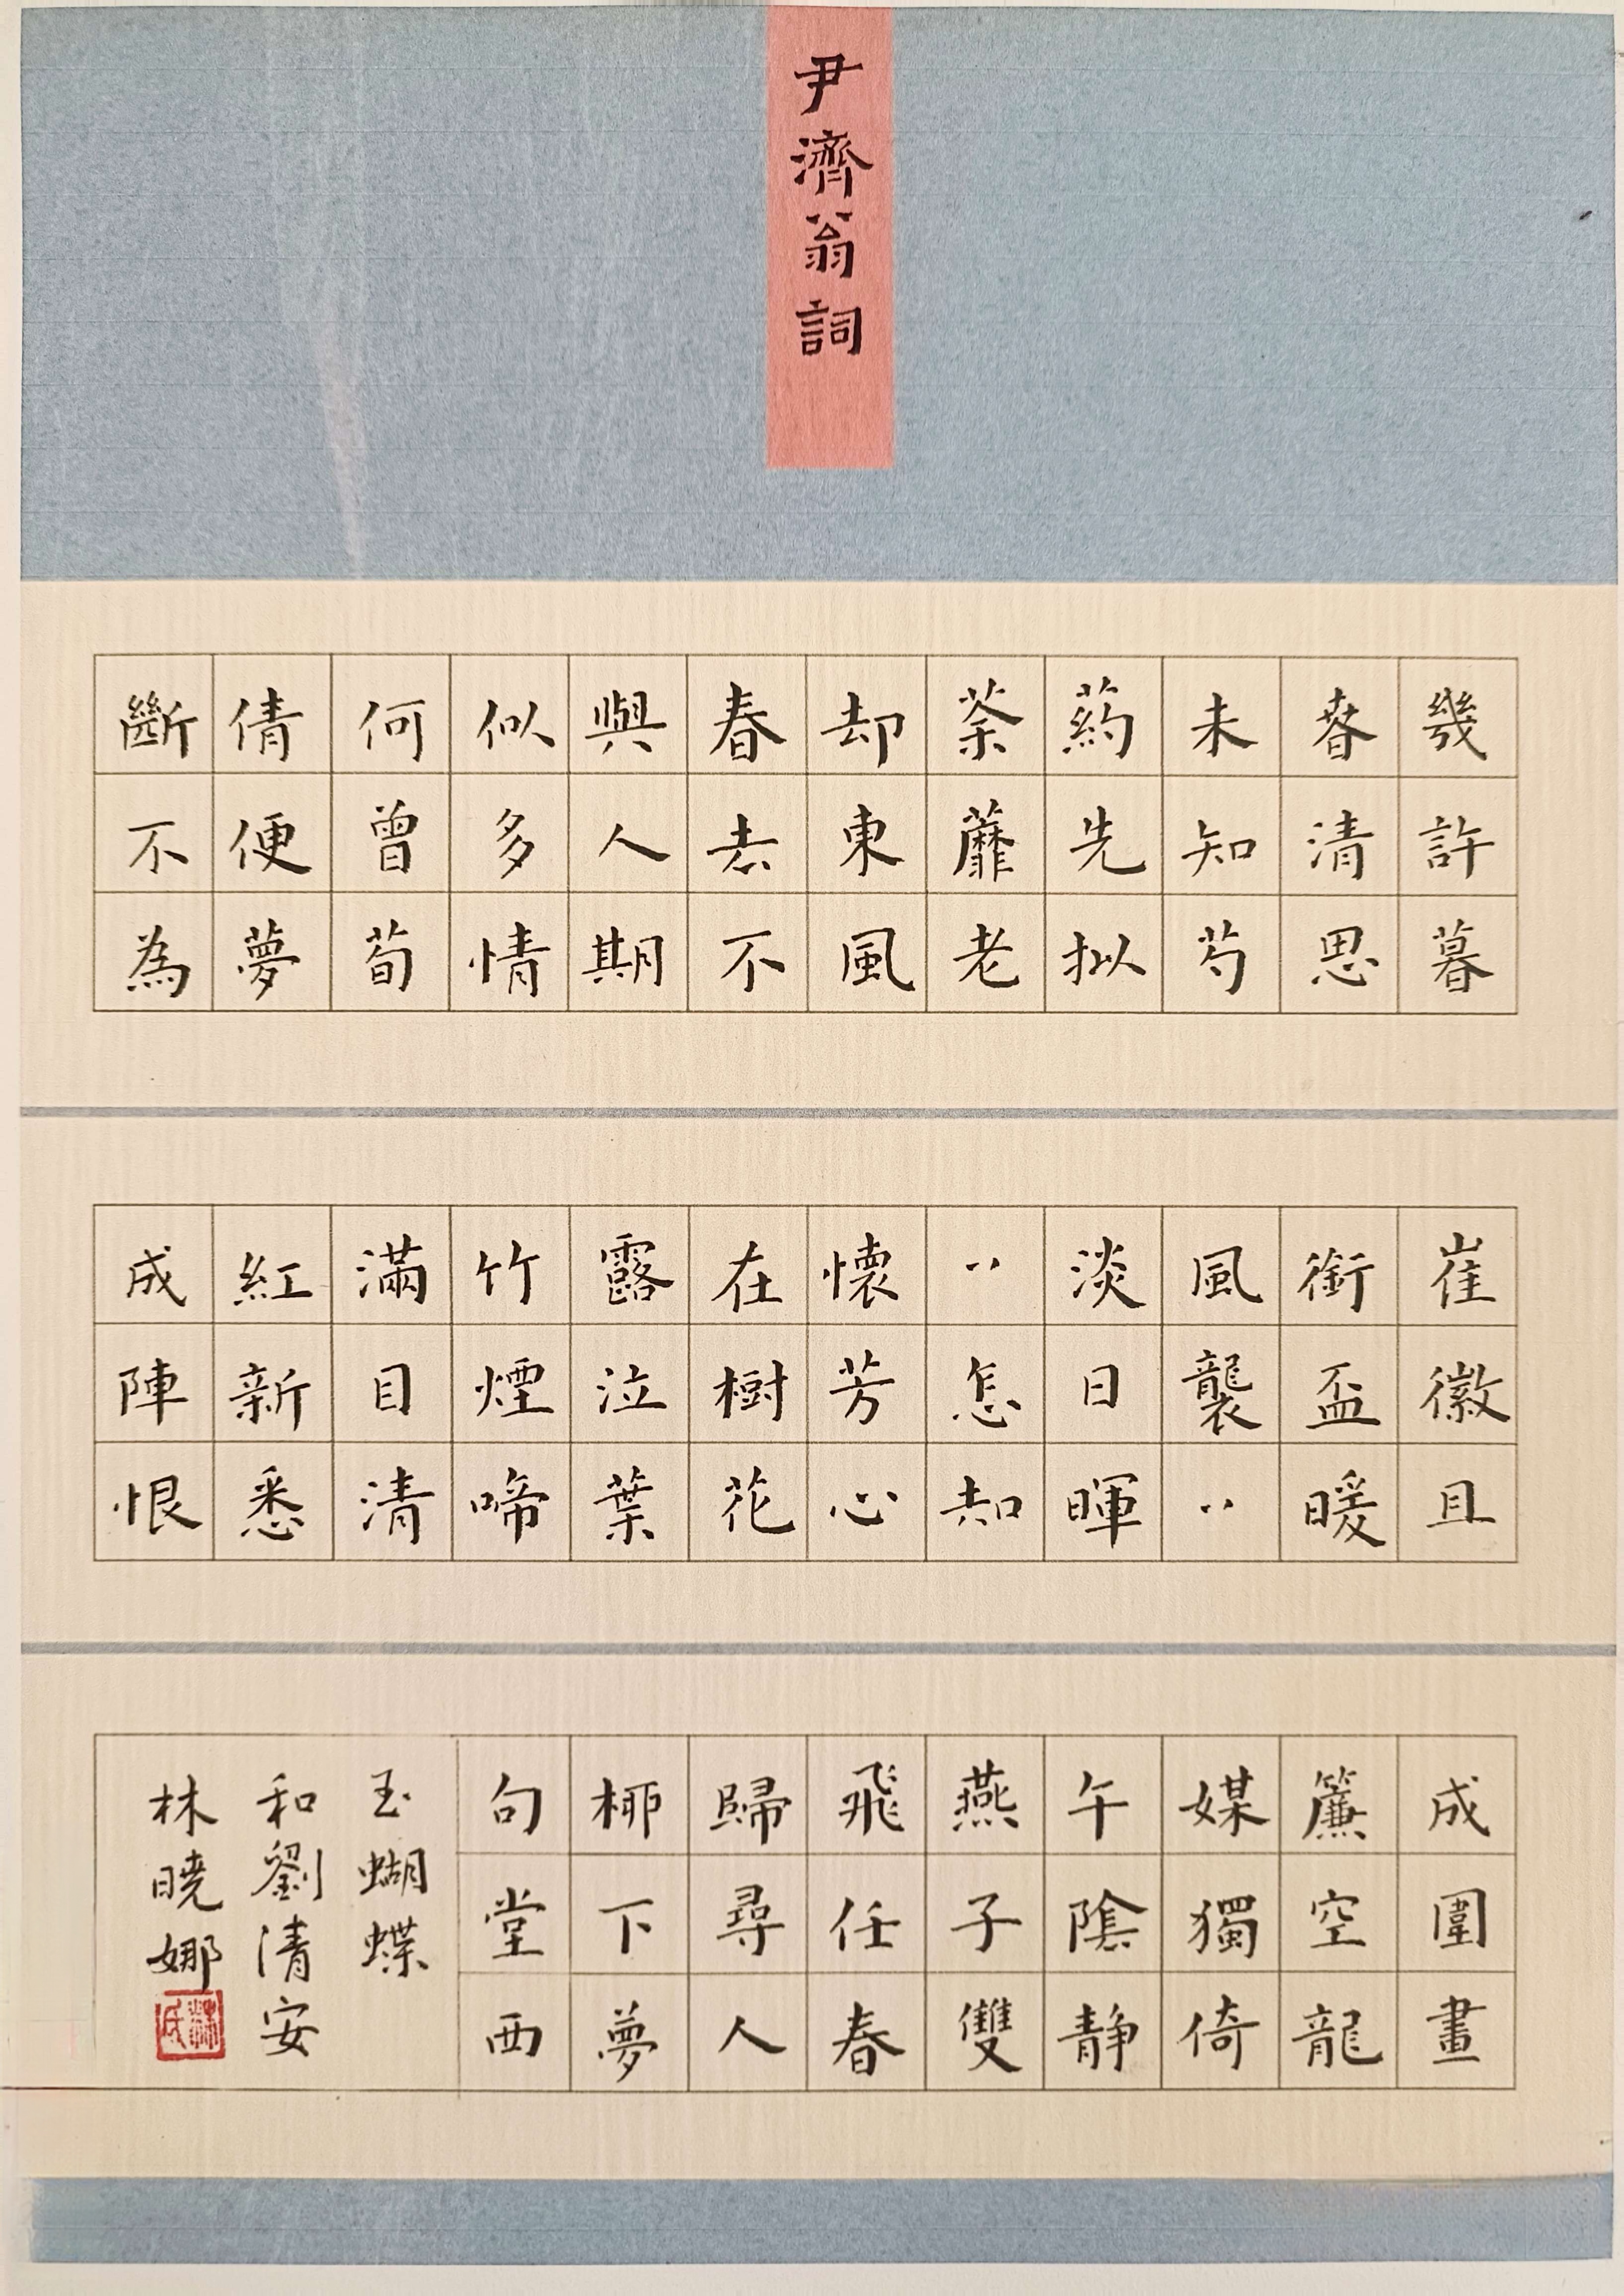 尹濟翁詞
幾許暮
春清思
未知芍
葯先拟
荼蘼老
却東風
春去不
與人期
似多情
何曾荀
倩便夢
斷不為
崔徽且
銜盃暖
風襲〃
淡日暉
〃怎知
懷芳心
在樹花
露泣葉
竹煙啼
滿目清
紅新悉
成陣恨
成圍畫
簾空龍
媒獨倚
午陰静
燕子雙
飛任春
歸尋人
柳下夢
句堂西
玉蝴蝶
和劉清安
林曉娜
林氏